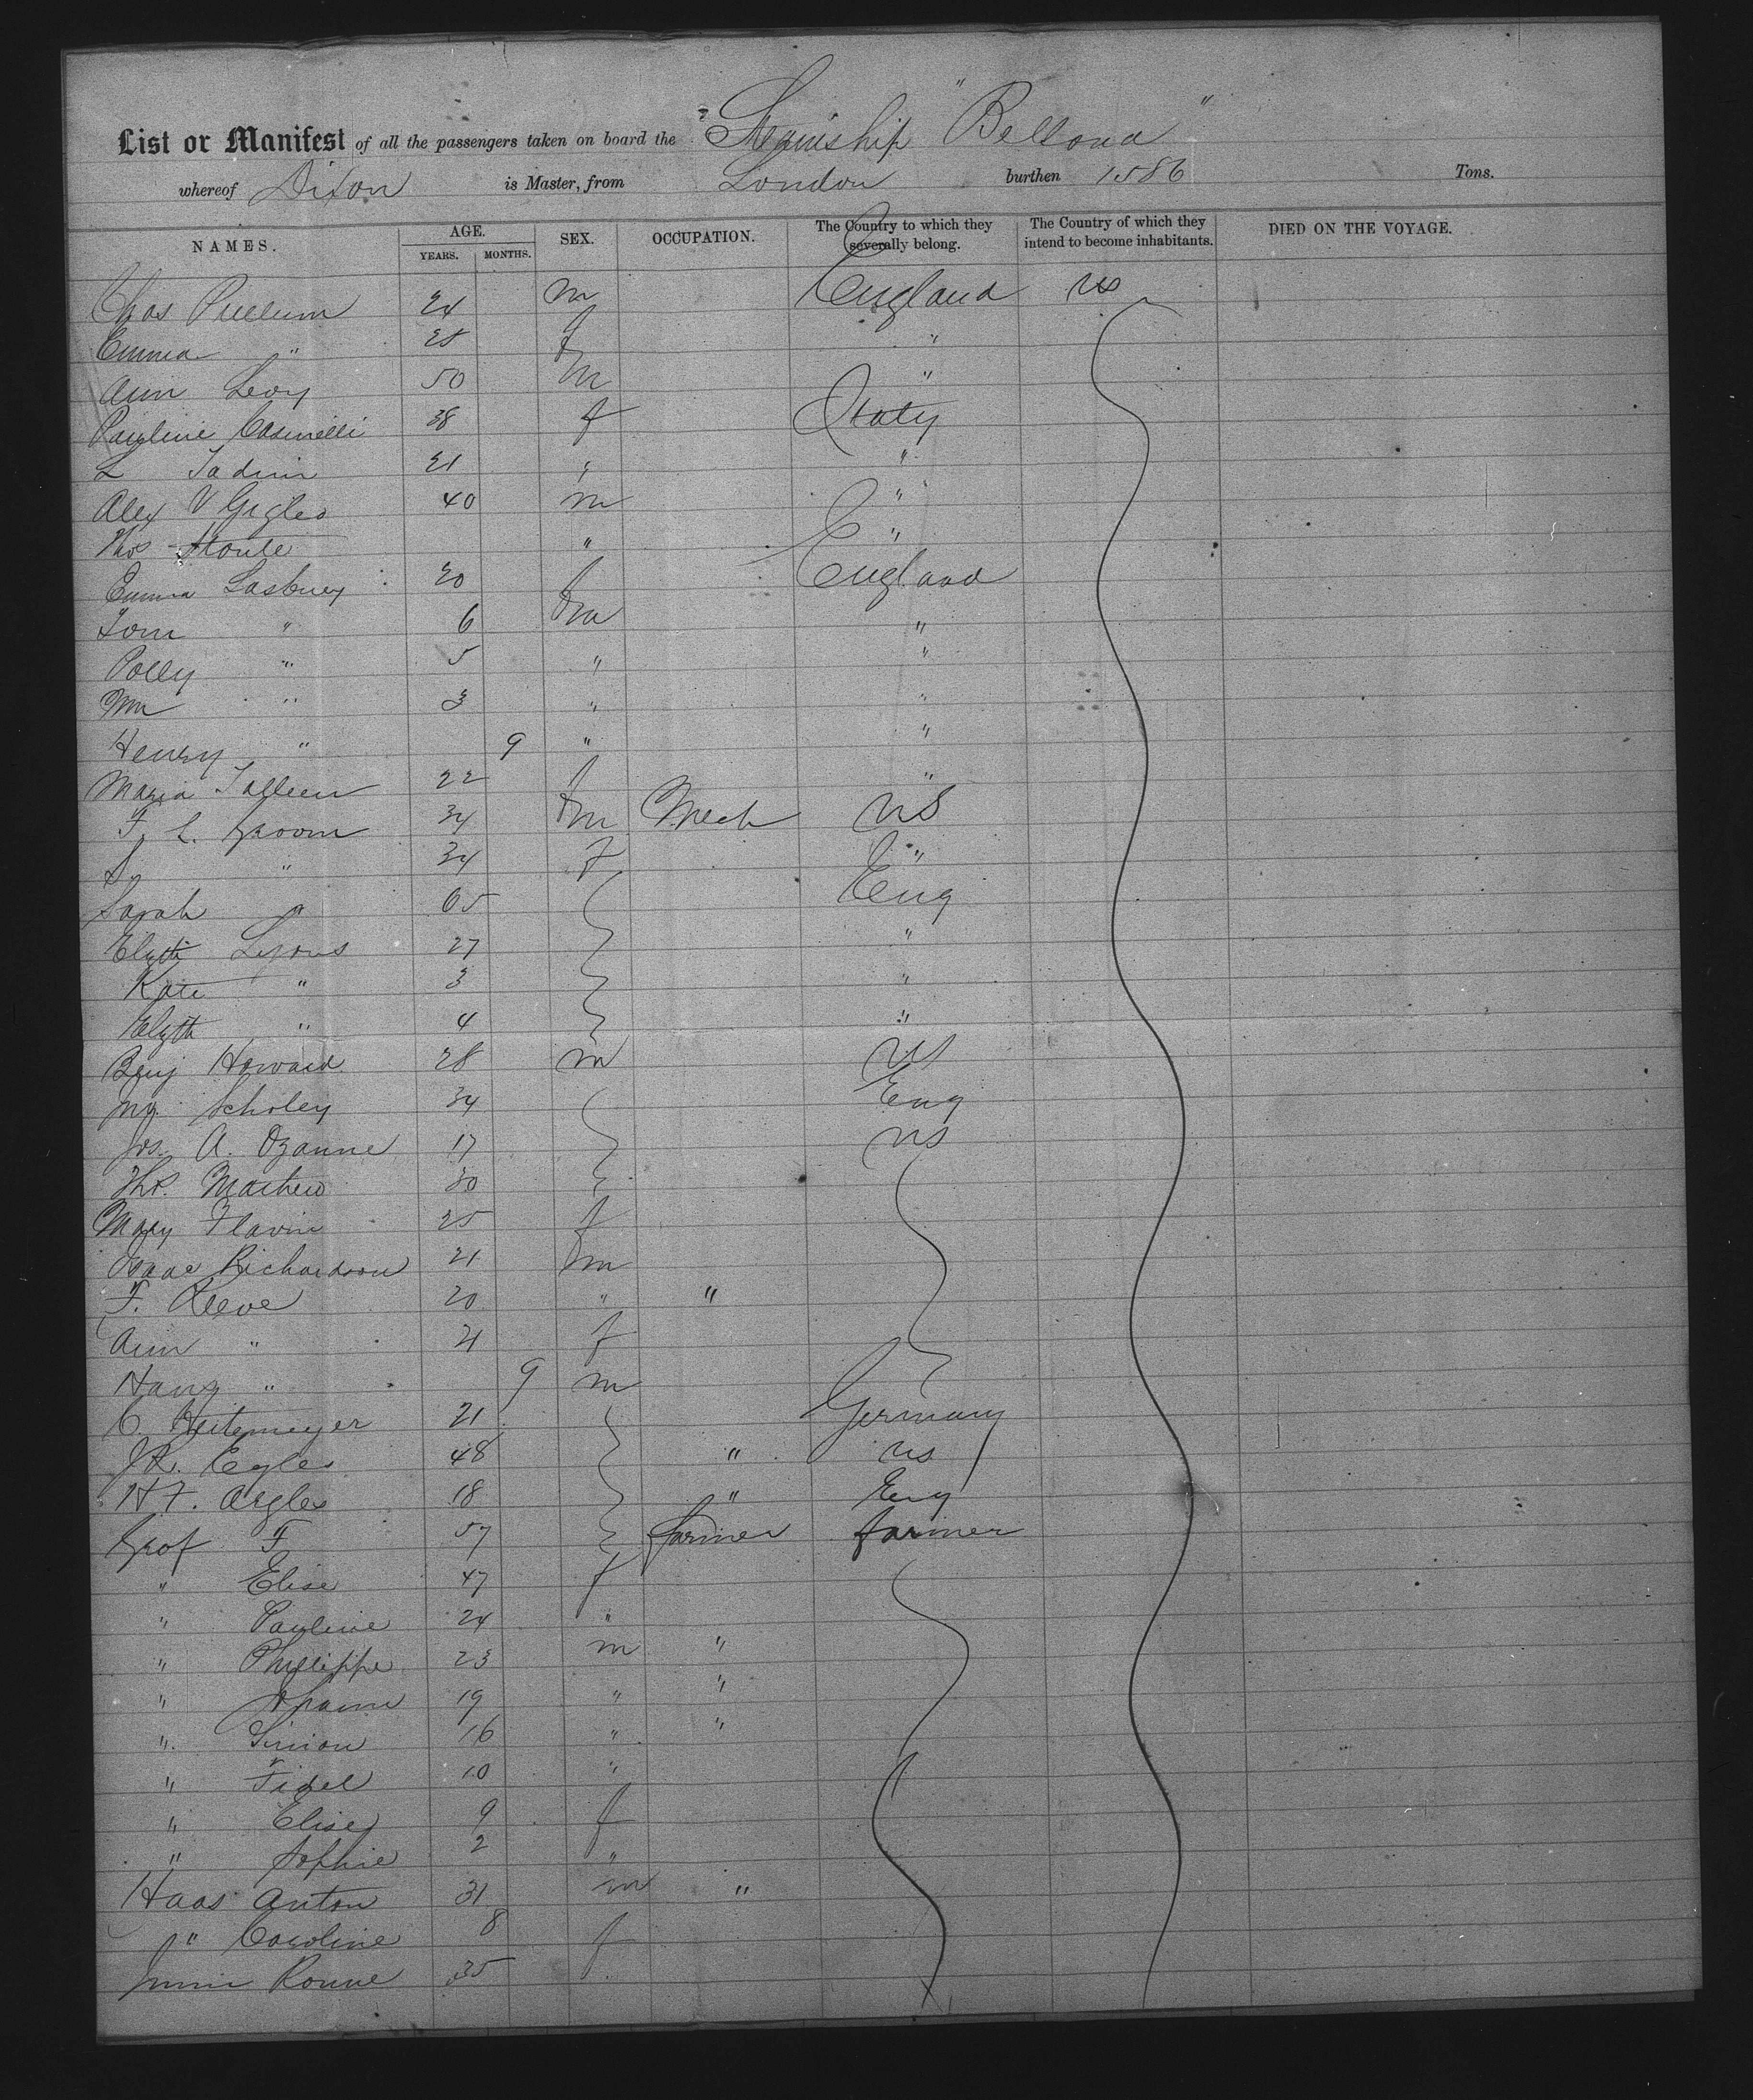 List or Manifest of all the passengers taken on board the Steamship "Bellona"
whereof Dixon is Master, from London burthen 1586 Tons.
NAMES. AGE. YEARS. MONTHS. SEX. OCCUPATION. The Country to which they severally belong. The Country of which they intend to become inhabitants. DIED ON THE VOYAGE.
Chas Pullum 24 m England US
Emma " 25 f "
Ann Levy 50 m "
Pauline Casinelli 38 f Italy
L Tadini 21 " "
Alex V Gigles 40 m "
Thos Stoute " "
Emma Lasbury 20 f England
Tom " 6 m "
Polly " 5 " "
Wm " 3 " "
Henry " 9 " "
Maria Talleen 22 f "
F. L. Groom 34 m Mech US
S. " 34 f "
Sarah " 65 Eng
Elyth Lyons 27 "
Kate " 3 "
Elyth " 4 "
Benj Howard 28 m US
Scholey 34 Eng
Jos. A. Ozanne 17 US
Thos. Mathew 30
Mary Flavin 25 f
Isaac Richardson 21 m
F. Reeve 20 " "
Ann " 21 f
Harry " 9 m
C. Heitemeyer 21 Germany
Egles 48 " US
H F. Argles 18 " Eng
Grof F 57 farmer farmer
" Elise 47 f
" Pauline 24 "
" Phillippe 23 m "
" 19 " "
" Simon 16 " "
" Fidel 10 "
" Elise 9 f
" Sophie 2 "
Haas Anton 31 m "
" Caroline 8 f
Ronne 35